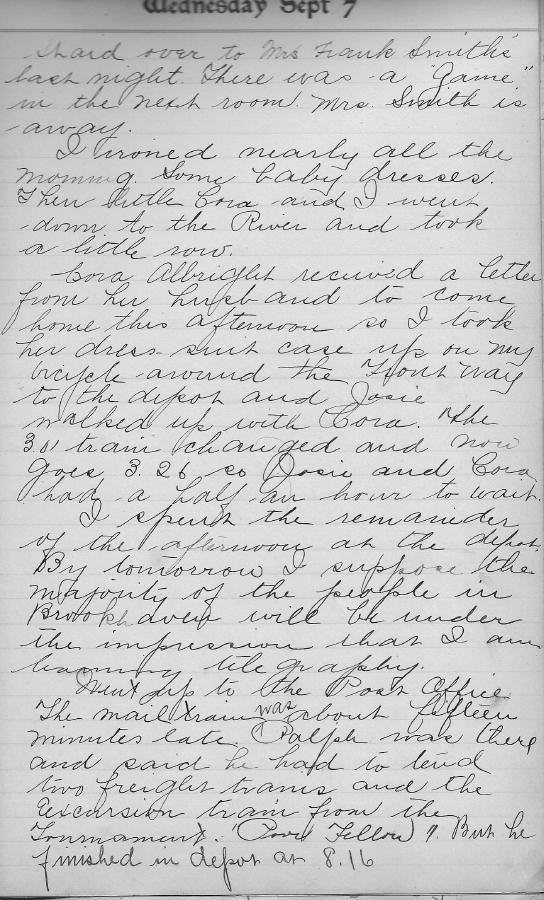 Wednesday Sept 7
Staid over to Mrs Frank Smiths
last night. There was a "Game"
in the next room. Mrs. Smith is
away.
I ironed nearly all the
morning. Some baby dresses.
Then little Cora and I went
down to the River and took
a little row.
Cora Albright received a letter
from her husband to come
home this afternoon so I took
her dress suit case up on my
bicycle around the Front way
to the depot and Josie
walked up with Cora. The
301 train changed and now
goes 3.26 so Josie and Cora
had a half an hour to wait.
I spent the remainder
of the afternoon at the depot.
By tomorrow I suppose the
majority of the people in
Brookhaven will be under
the impression that I am
learning telegraphy.
Went up to the Post Office
The mail train was about fifteen
minutes late. Ralph was there
and said he had to tend
two freight trains and the
Excursion train from the
Tournament. "Poor Fellow". But he
finished in depot at 8.16